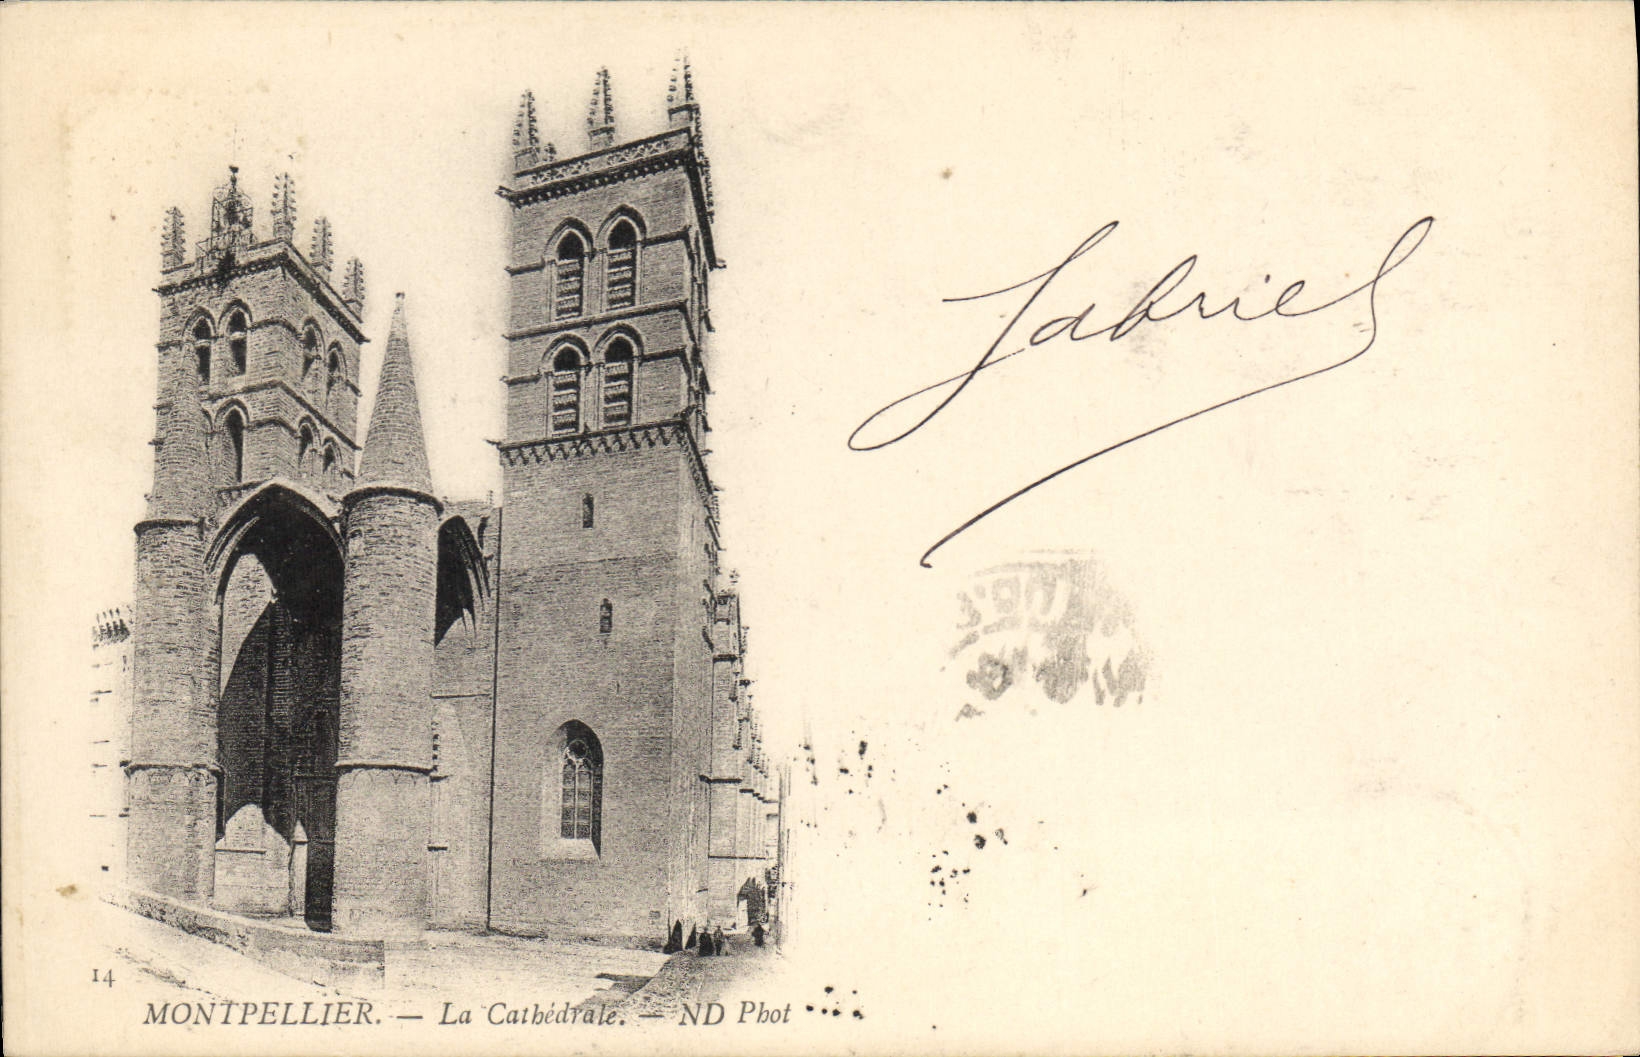 Gabriel
14
MONTPELLIER. — La Cathédrale. — ND Phot